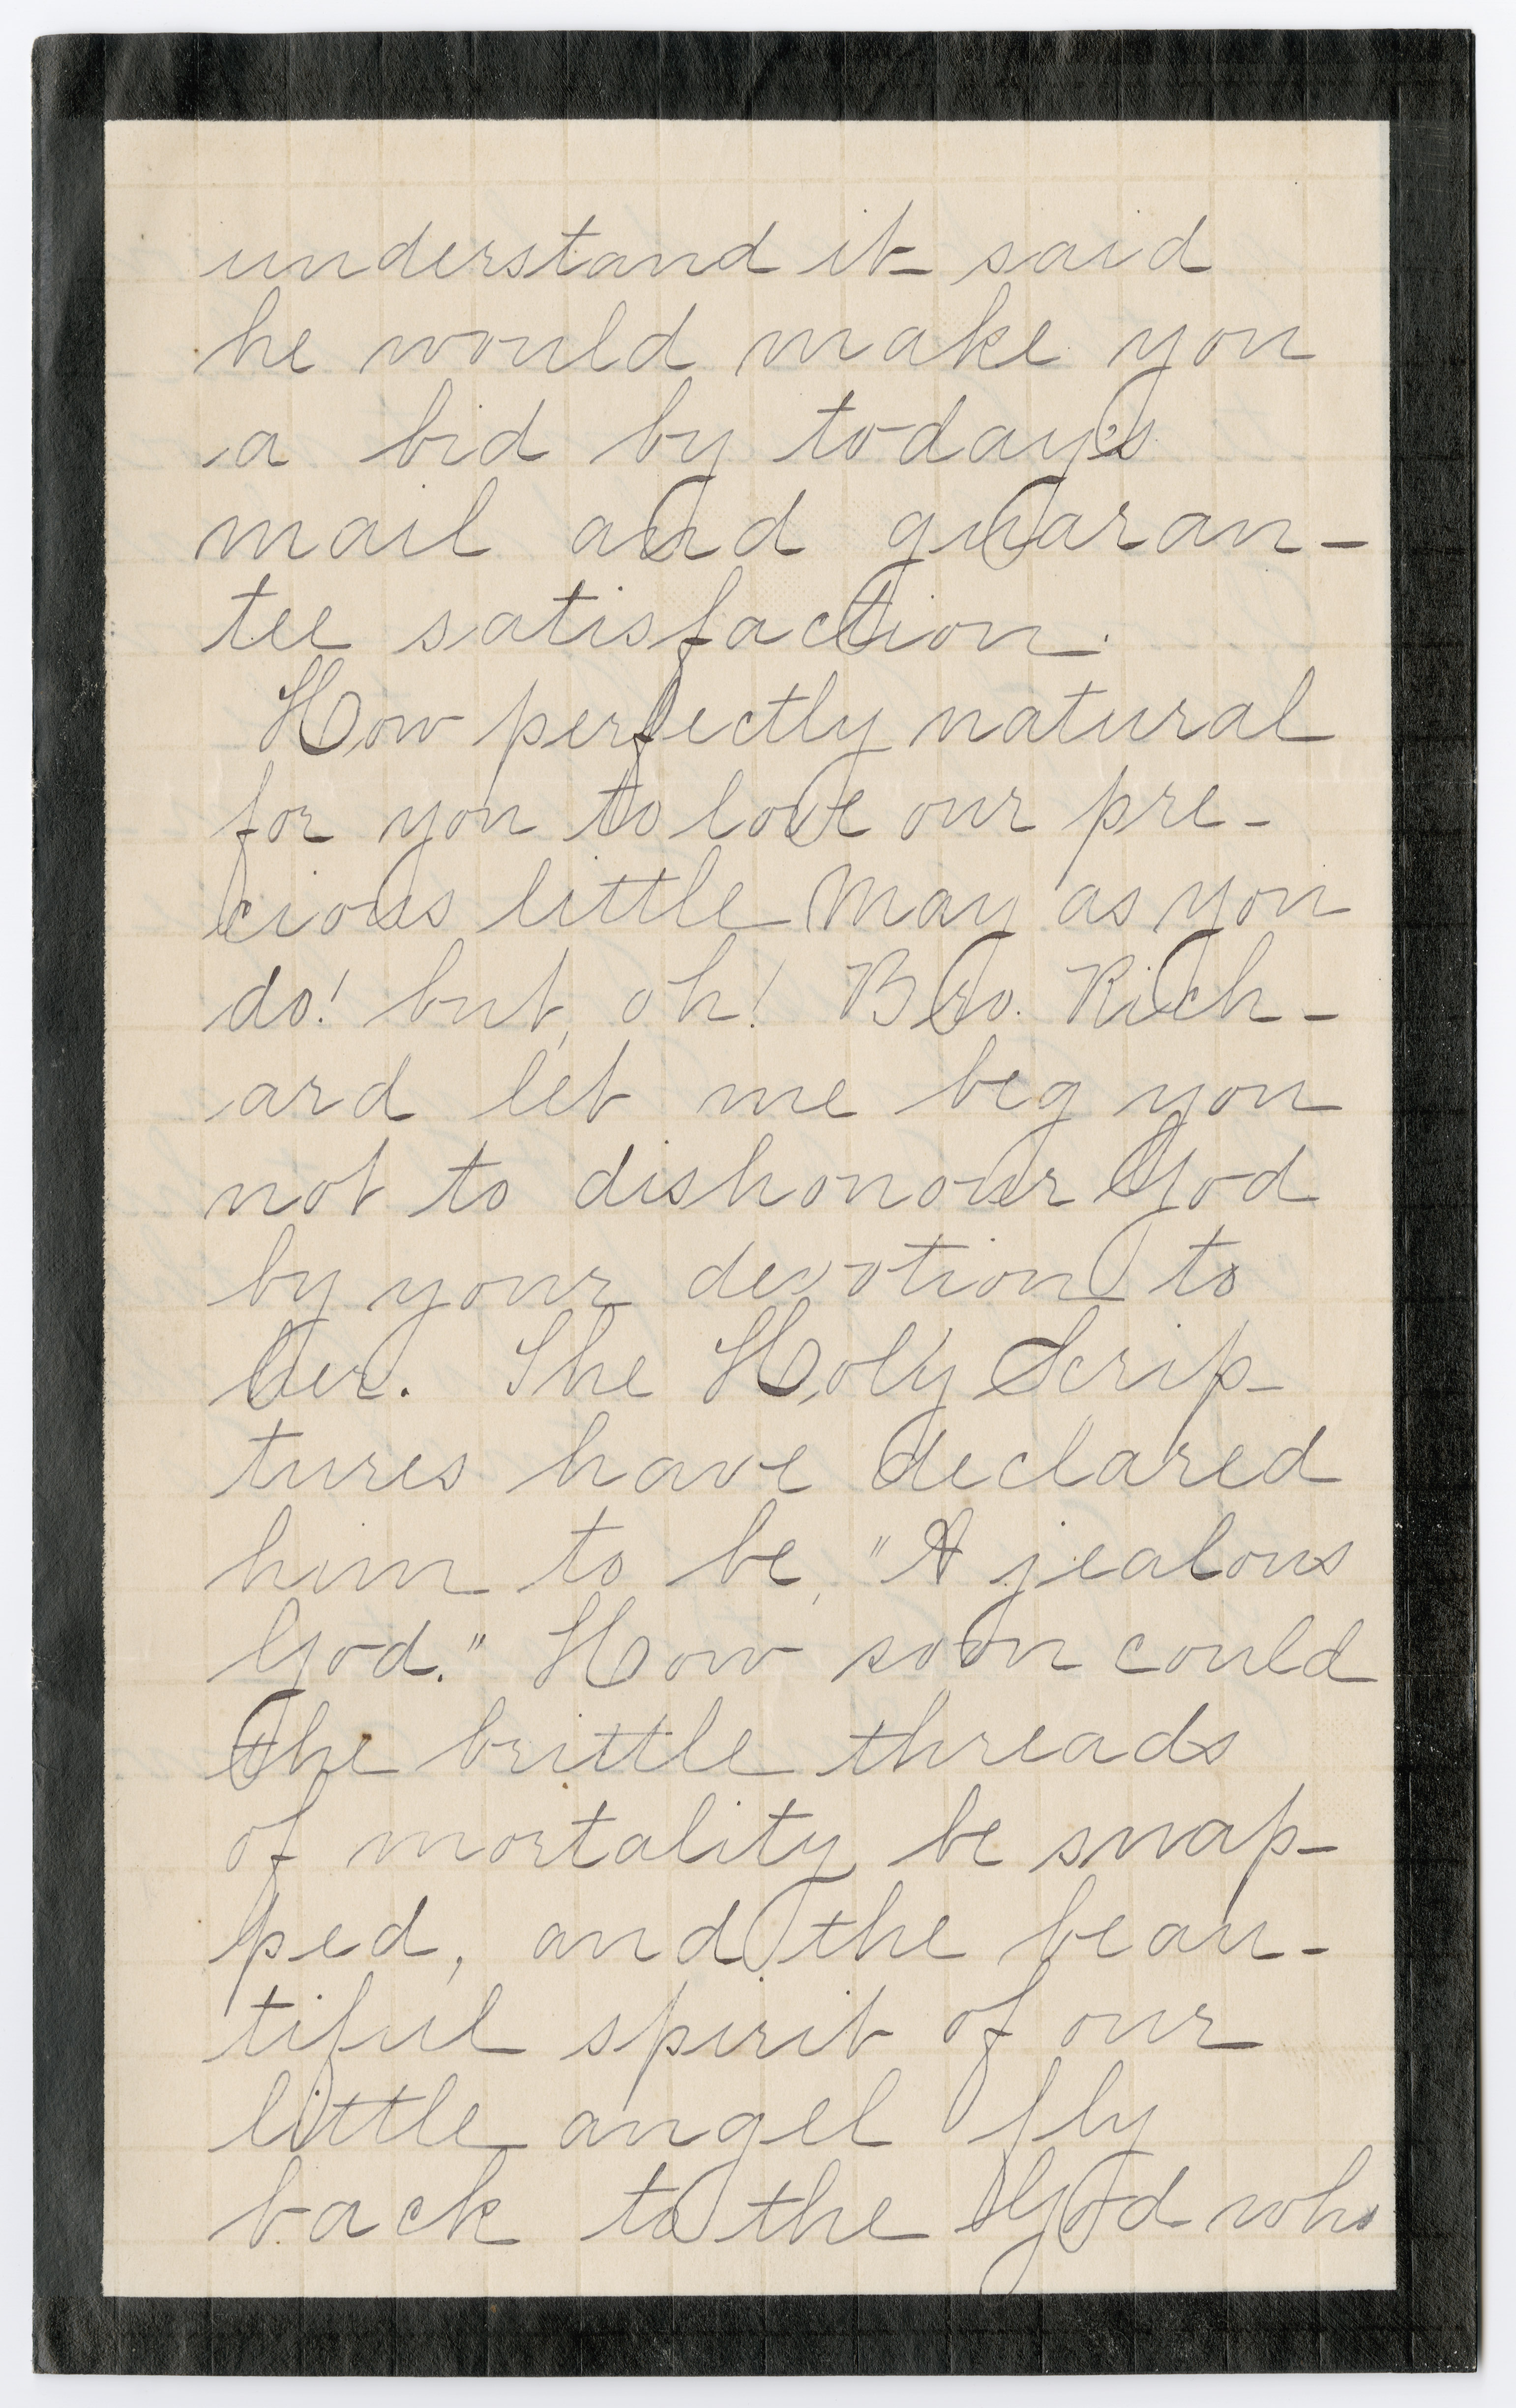 understand it - said
he would make you
a bid by today's
mail and guaran-
tee satisfaction.
How perfectly natural
for you to love our pre-
cious little May as you
do! but, oh! Bro. Rich-
ard let me beg you
not to dishonour God
by your devotion to
her. The Holy Scrip-
tures have declared
him to be, "A jealous
God." How soon could
the brittle threads
of mortality be snap-
ped, and the beau-
tiful spirit of our
little angel fly
back to the God who